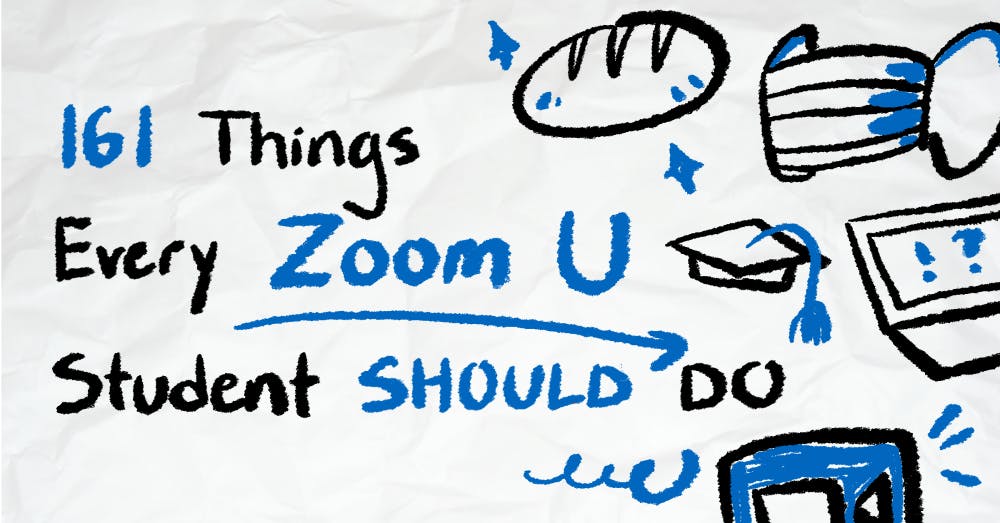 161 Things
Every Zoom U
Student SHOULD DO
! ?